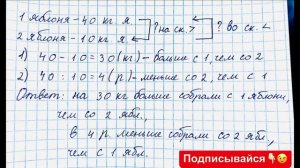 1 яблоня - 40 кг я ? на ск. > ? во ск. <
2 яблоня - 10 кг я
1) 40 - 10 = 30 (кг) - больше с 1, чем со 2
2) 40 : 10 = 4 (р) - меньше со 2, чем с 1
Ответ: на 30 кг больше собрали с 1 яблони,
чем со 2 ябл.
в 4 р меньше собрали со 2 ябл,
чем с 1 ябл.
Подписывайся